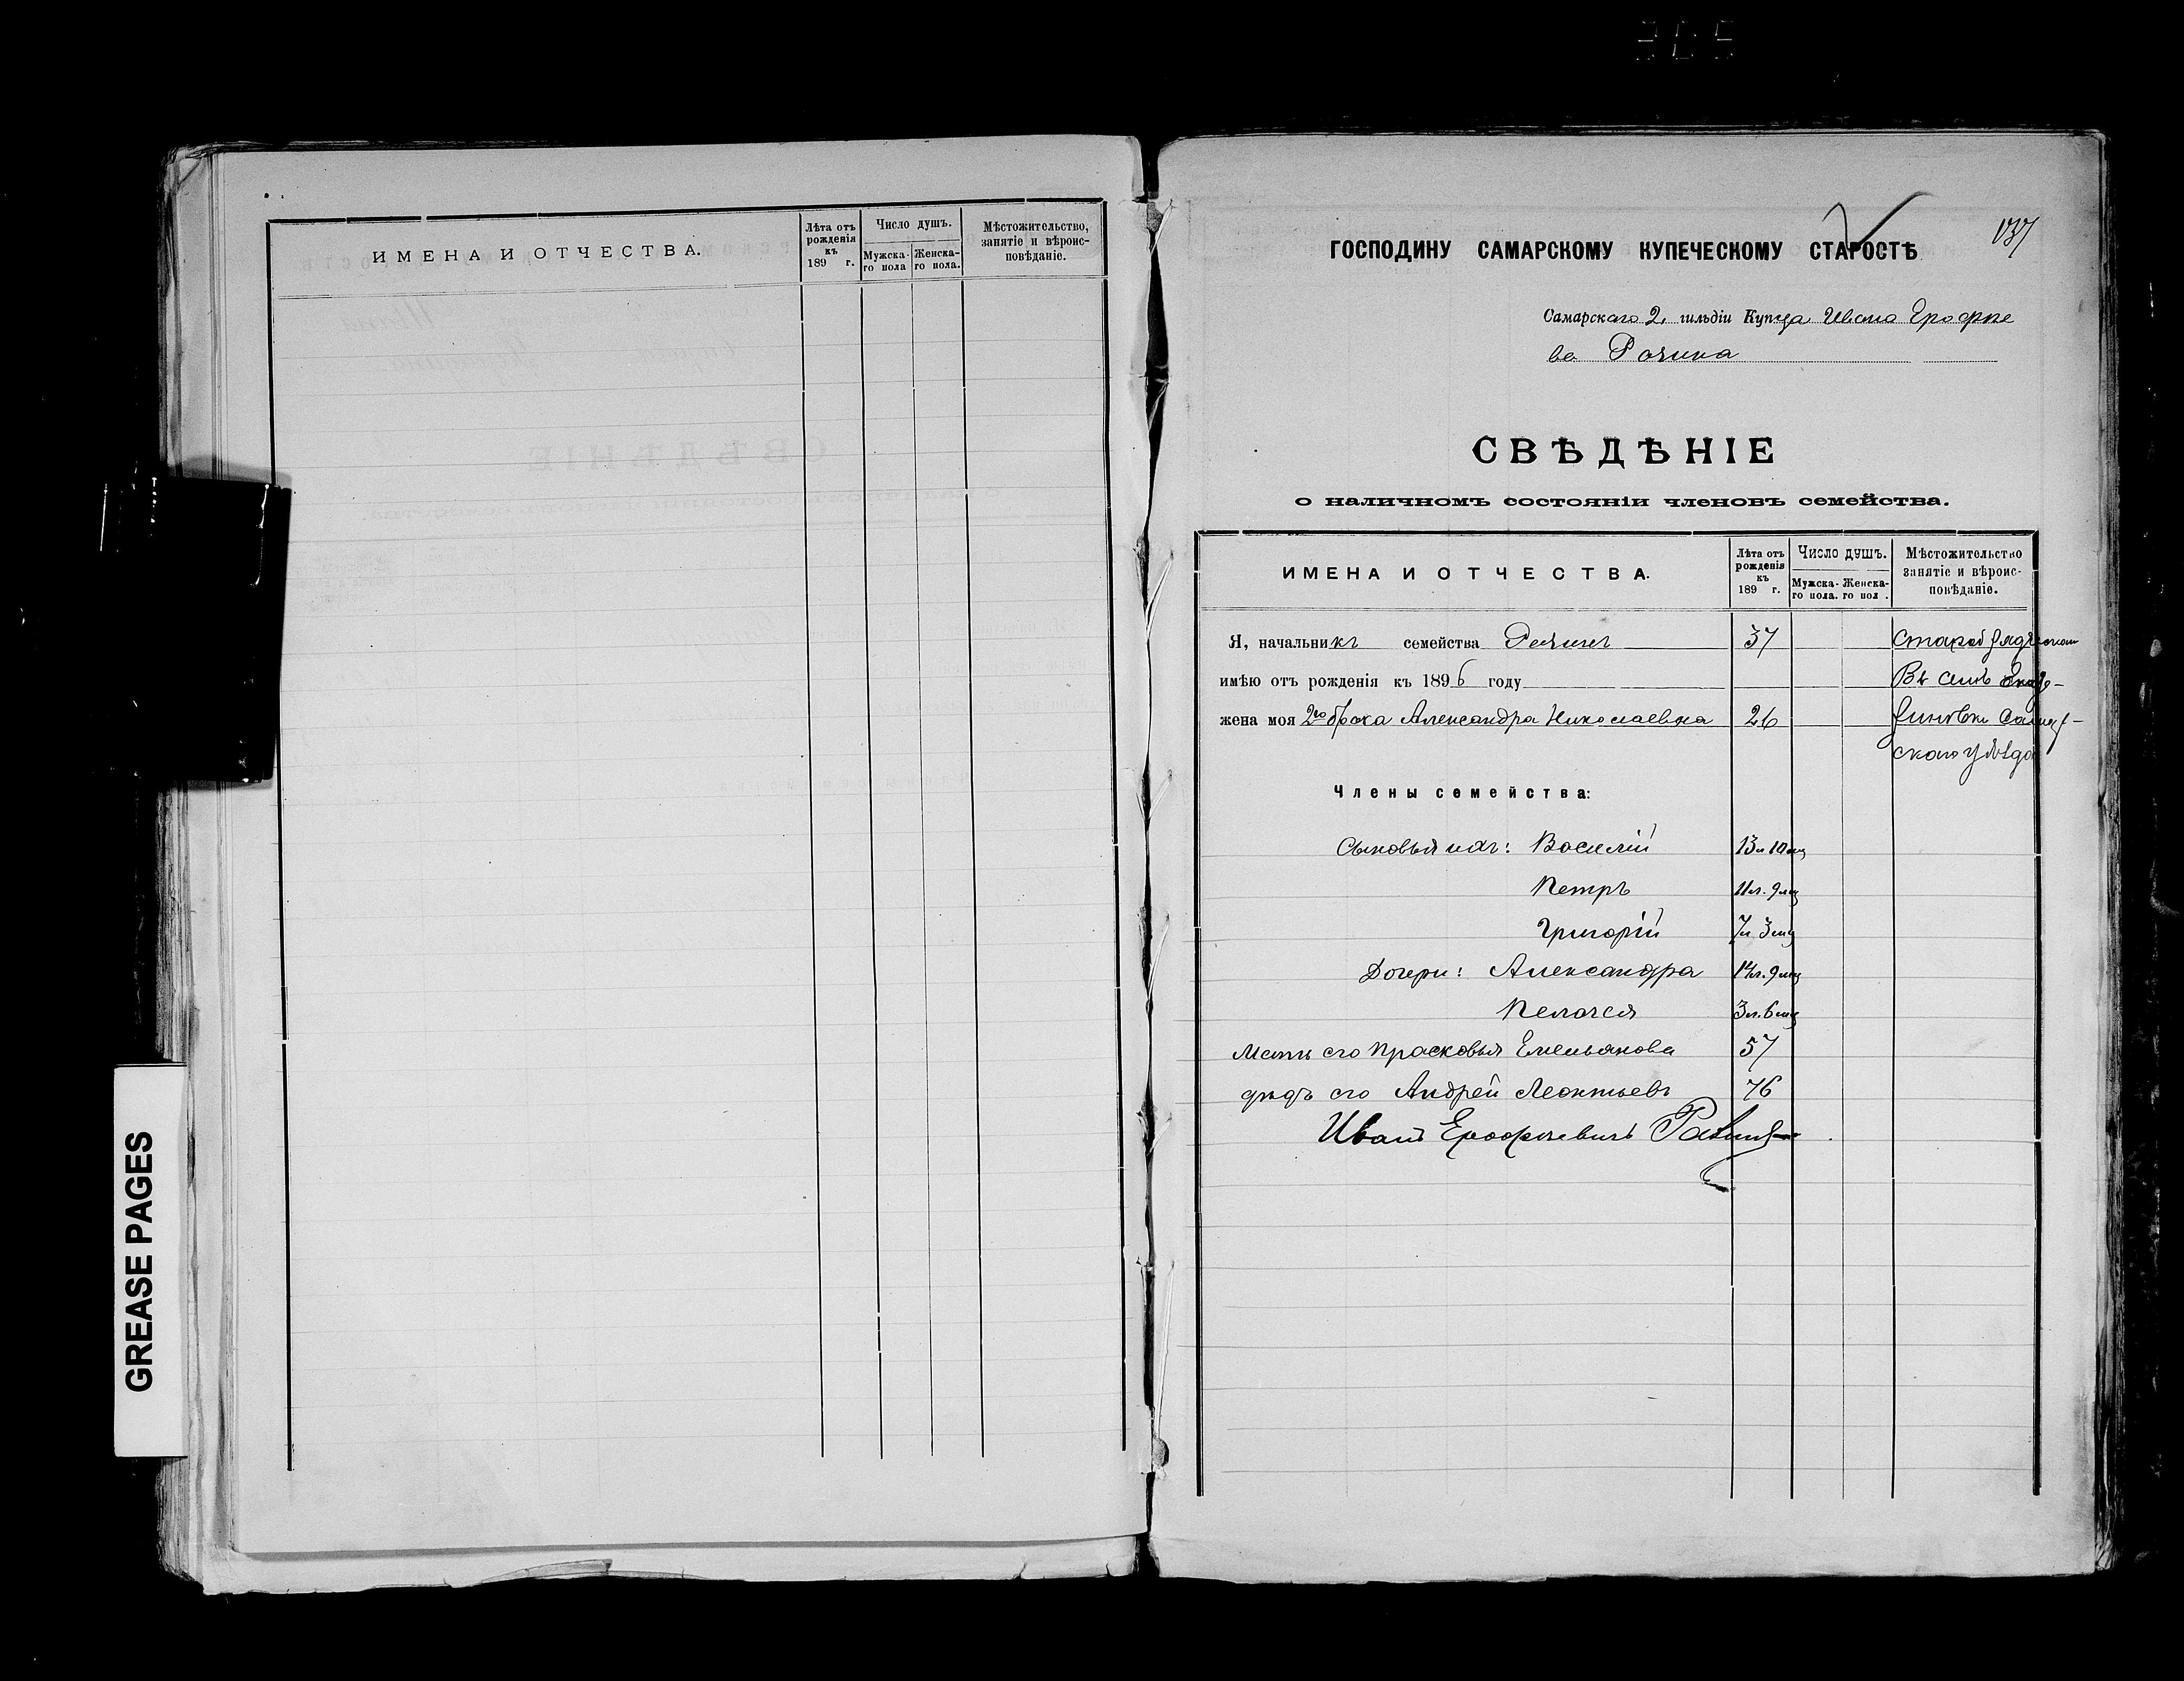 ИМЕНА И ОТЧЕСТВА.
Лѣта отъ рожденія къ 189 г.
Число душъ.
Мужска-го пола
Женска-го пола.
Мѣстожительство, занятіе и вѣроис-повѣданіе.
GREASE PAGES
137
ГОСПОДИНУ САМАРСКОМУ КУПЕЧЕСКОМУ СТАРОСТѢ
Самарскаго 2. гильдіи Купца Ивана Ерофѣе
ва
СВѢДѢНІЕ
о наличномъ состояніи членовъ семейства.
ИМЕНА И ОТЧЕСТВА.
Лѣта отъ рожденія къ 189 г.
Число душъ.
Мужска-го пола.
Женска-го пол .
Мѣстожительство занятіе и вѣроис-повѣданіе.
Я, начальникъ семейства 37
имѣю отъ рожденія къ 1896 году Въ селѣ
жена моя 2го брака Александра Николаевна 26
скаго уѣзда
Члены семейства:
Сыновья ихъ: Василій 13л 10мц
Петръ 11л. 9мц
Григорій 7л 3мц
Дочери: Александра 14л. 9мц
Пелагея 3л. 6мц
Мать его Прасковья Емельянова 57
дѣдъ его Андрей Леонтьевъ 76
Иванъ Ерофѣевичъ